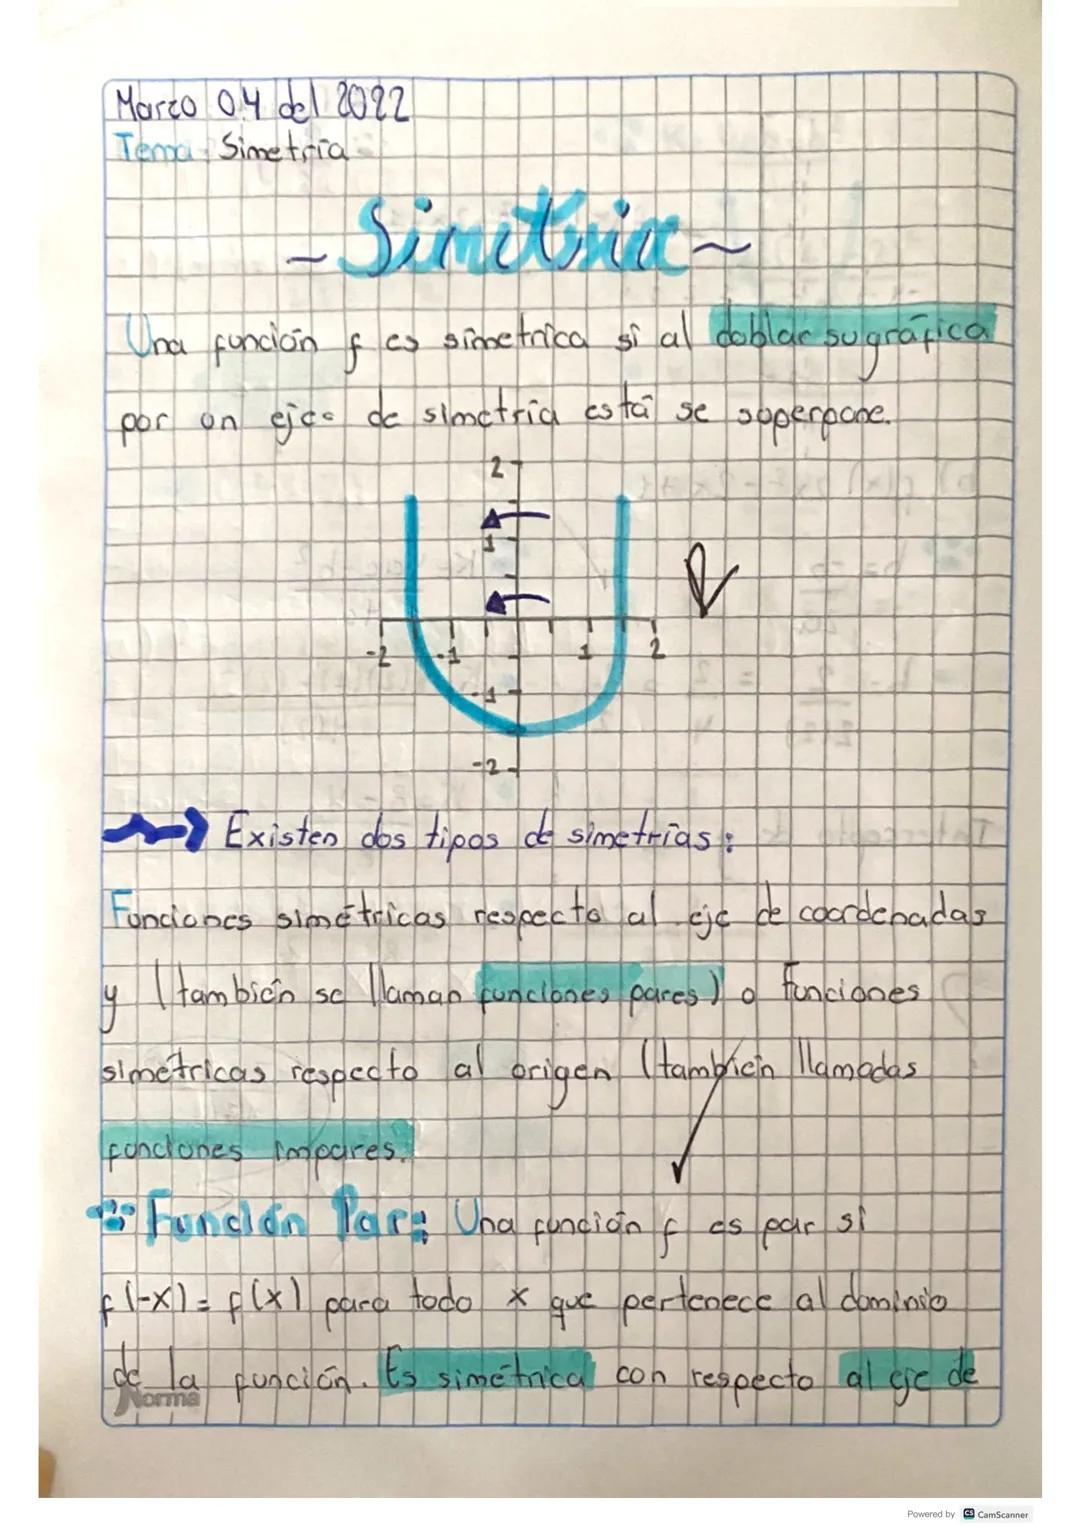 Marzo 04 del 2022
Tema: Simetría
~ Simetria ~
Una función f es simetrica si al doblar su gráfica
por un eje de simetria está se superpone.
2
1
-2 -1 1 2
-1
-2
Existen dos tipos de simetrías:
Funciones simétricas respecto al eje de coordenadas
y (también se llaman funciones pares) o funciones
simétricas respecto al origen (también llamadas
funciones impares.
Función Par: Una función f es par si
f(-x) = f(x) para todo x que pertenece al dominio
de la función. Es simétrica con respecto al eje de
Norma
Powered by CS CamScanner